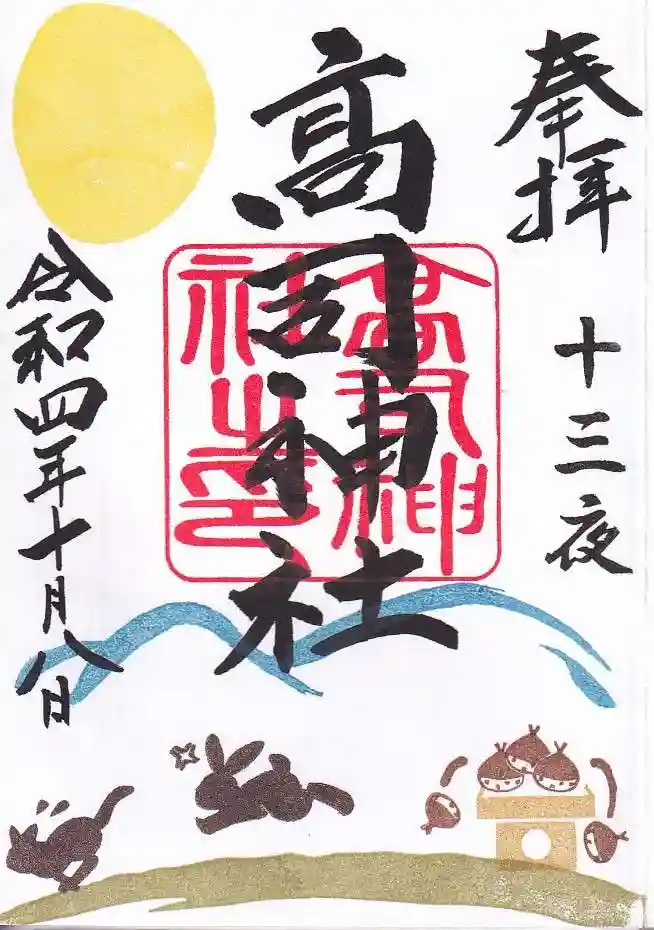 奉拝
十三夜
高司神社
高司神
社之印
令和四年十月八日